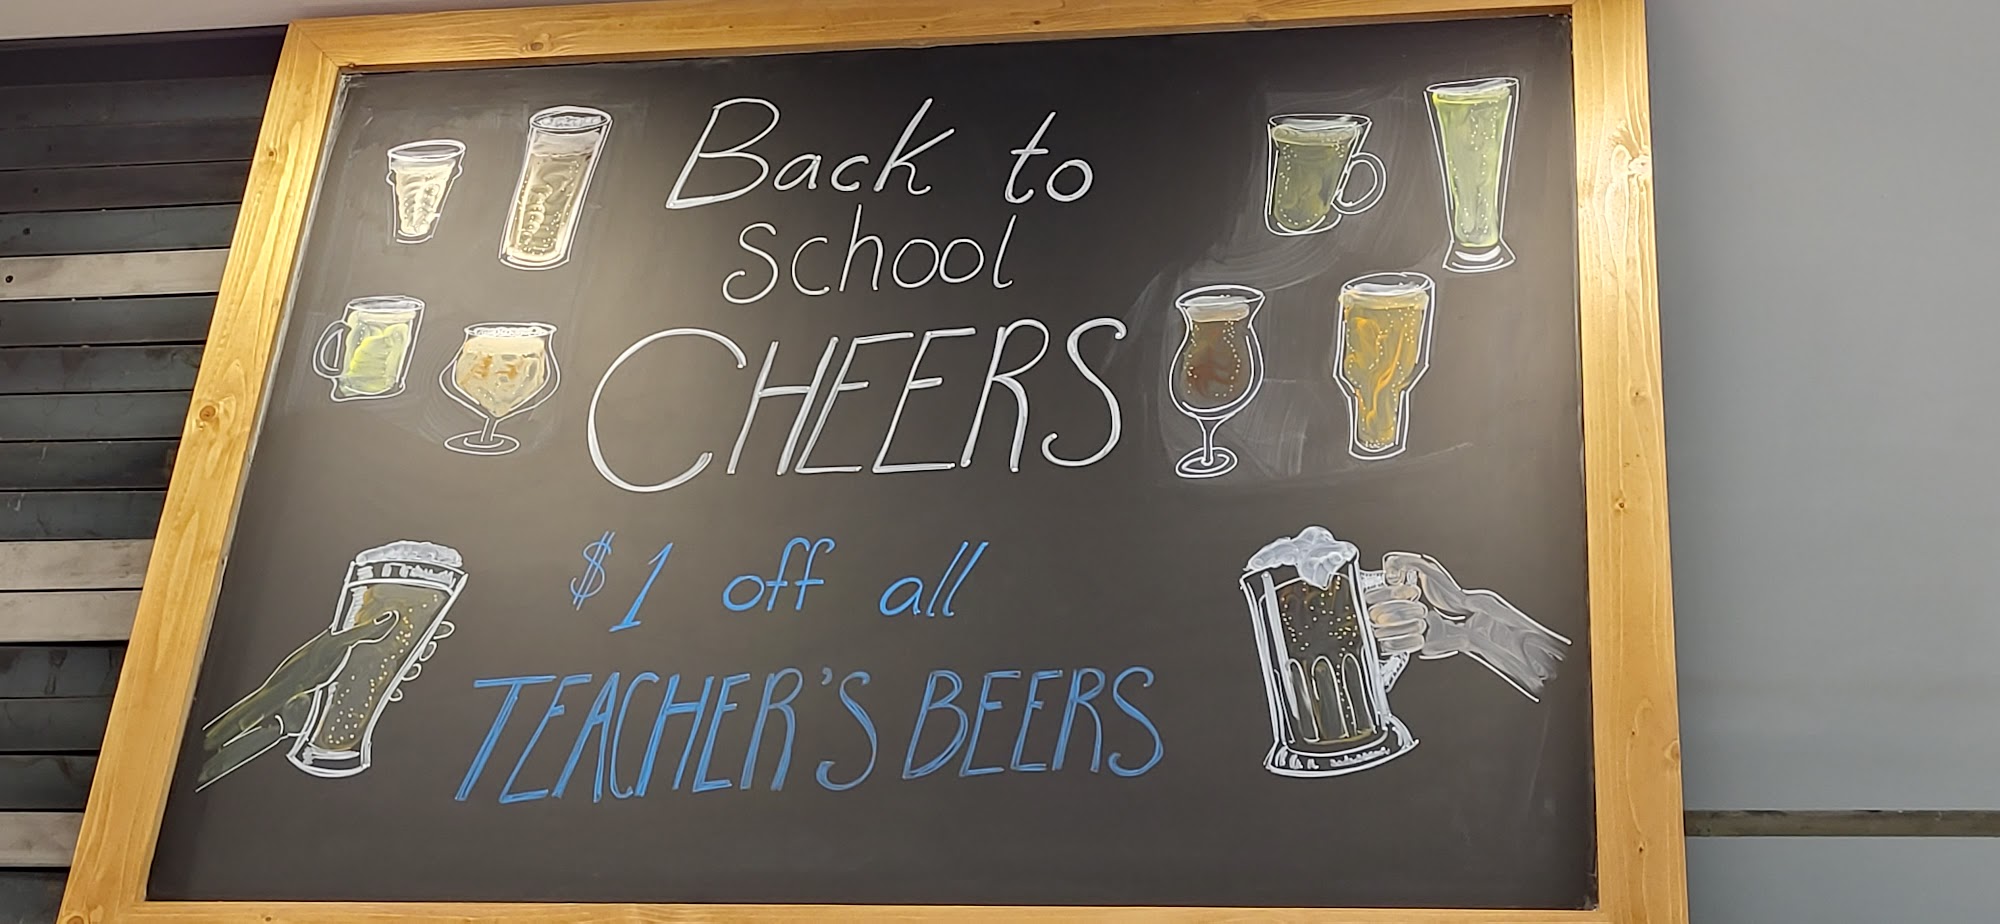 Back to
School
CHEERS
$1 off all
TEACHER'S BEERS